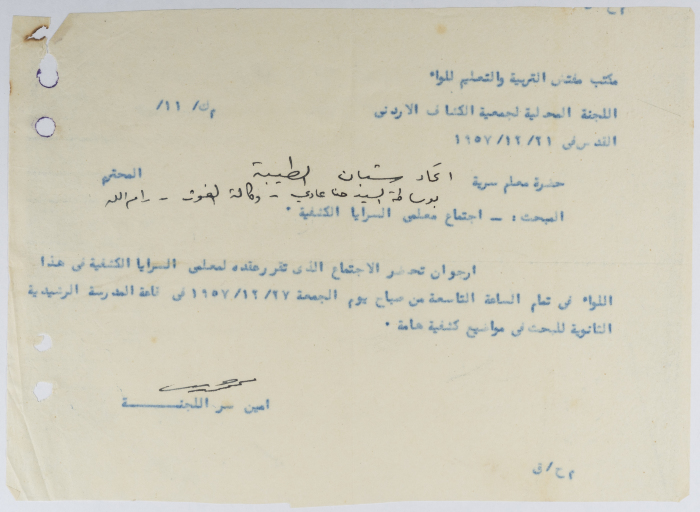 مكتب مفتش التربية والتعليم للواء
اللجنة المحلية لجمعية الكشاف الاردنى
م ك/ ١١/
القدس فى ٢١/ ١٢/ ١٩٥٧
حضرة معلم سرية اتحاد شبان الطيبة المحترم
بوساطة السيد حنا عادي - وكالة الغوث - رام الله
المبحث : - اجتماع معلمى السرايا الكشفية .
ارجو ان تحضر الاجتماع الذى تقرر عقده لمعلمى السرايا الكشفية فى هذا
اللواء فى تمام الساعة التاسعة من صباح يوم الجمعة ٢٧/ ١٢/ ١٩٥٧ فى قاعة المدرسة الرشيدية
الثانوية للبحث فى مواضيع كشفية هامة .
امين سر اللجنة
م ح/ ف